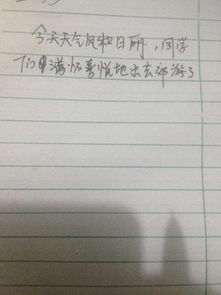 今天天气风和日丽，同学
们满怀喜悦地出去郊游了